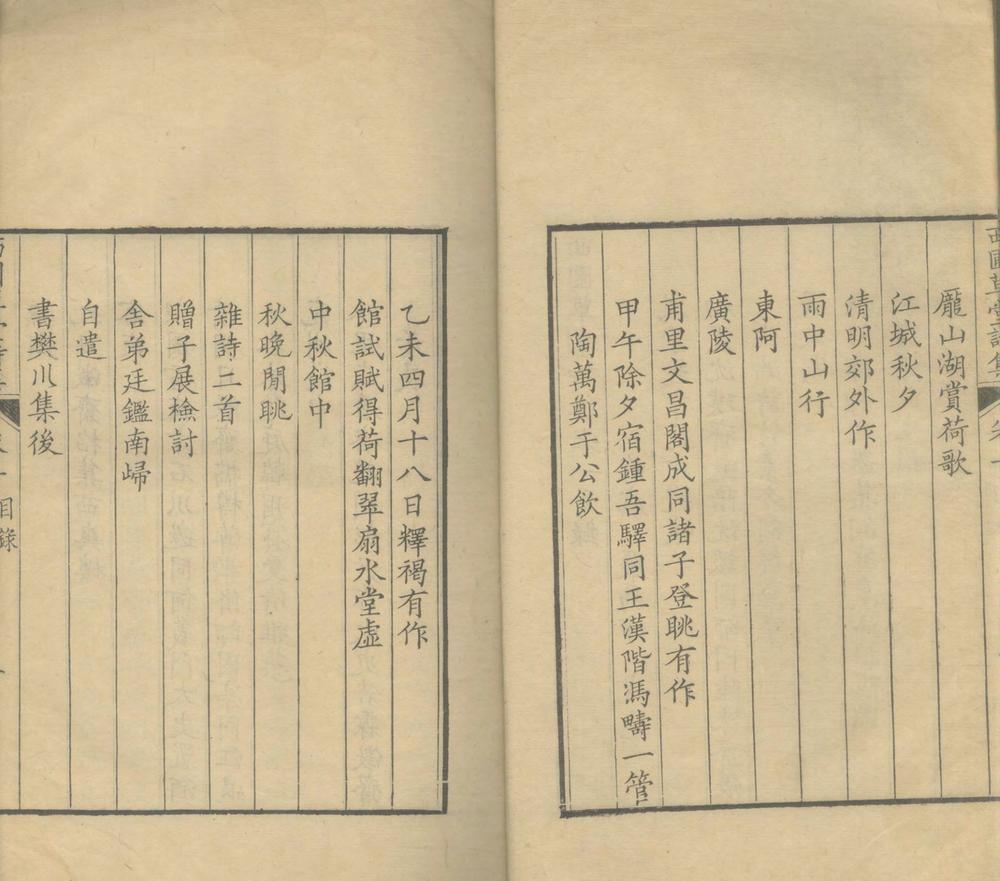 西圃草堂詩集
龎山湖賞荷歌
江城秋夕
清明郊外作
雨中山行
東阿
廣陵
甫里文昌閣成同諸子登眺有作
甲午除夕宿鍾吾驛同王漢階馮疇一管
陶萬鄭于公飲
乙未四月十八日釋褐有作
館試賦得荷翻翠扇水堂虛
中秋館中
秋晚閒眺
雜詩二首
贈子展檢討
舍弟廷鑑南歸
自遣
書樊川集後
目錄